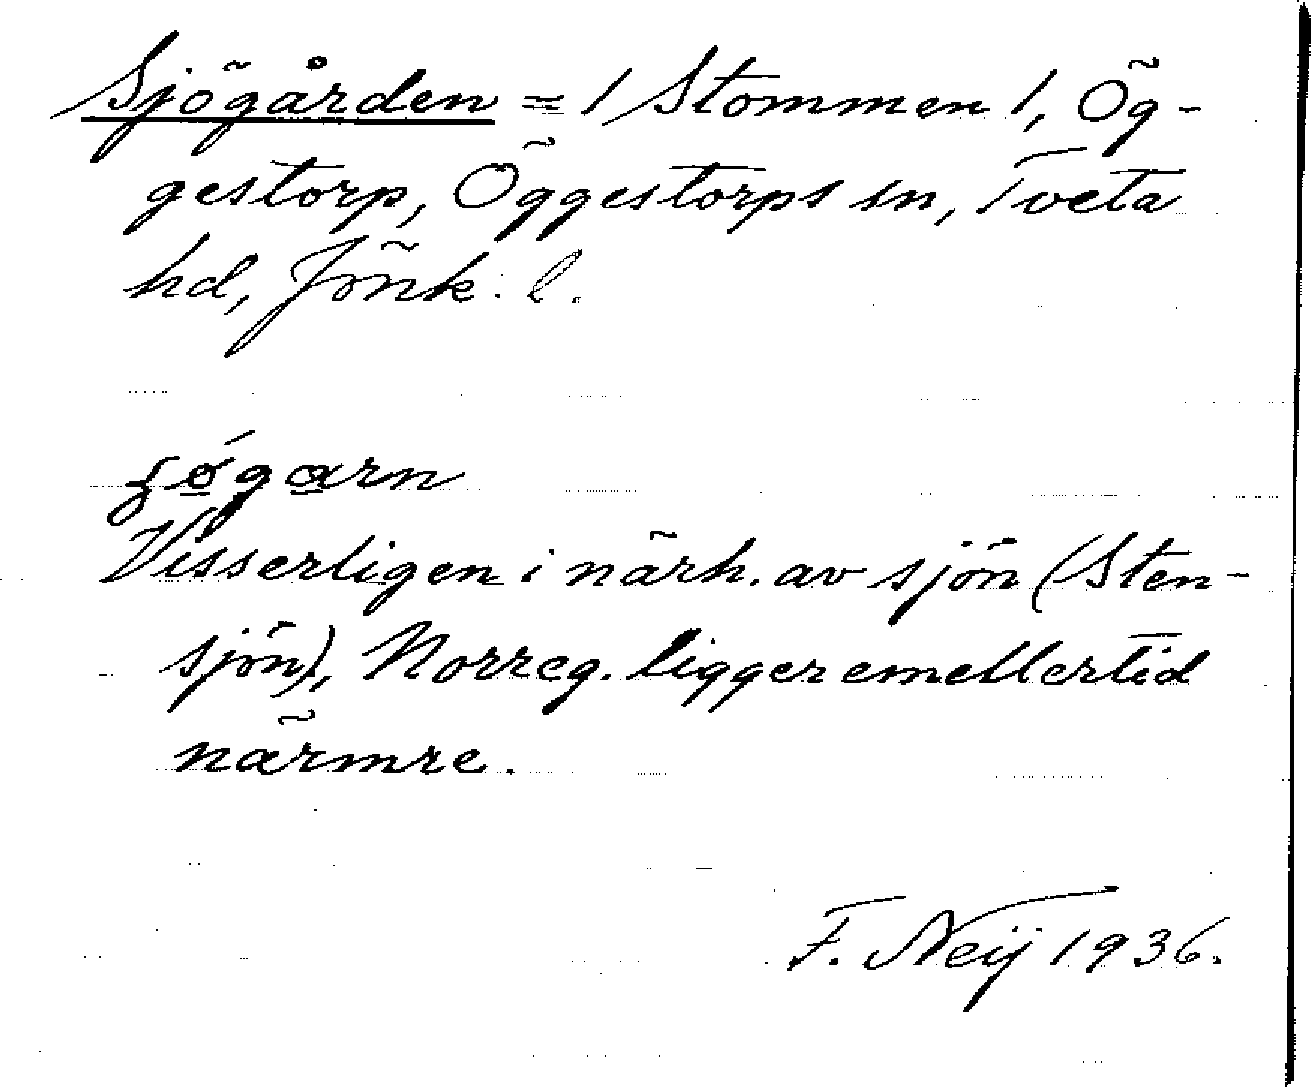 Sjögården = 1 Stommen 1, Ög-
gestorp, Öggestorps sn, Tveta
hd, Jönk. l.
ʃǿ̠ga̠rn
Visserligen i närh. av sjön (Sten-
sjön), Norreg. ligger emellertid
närmre.
F. Neij 1936.